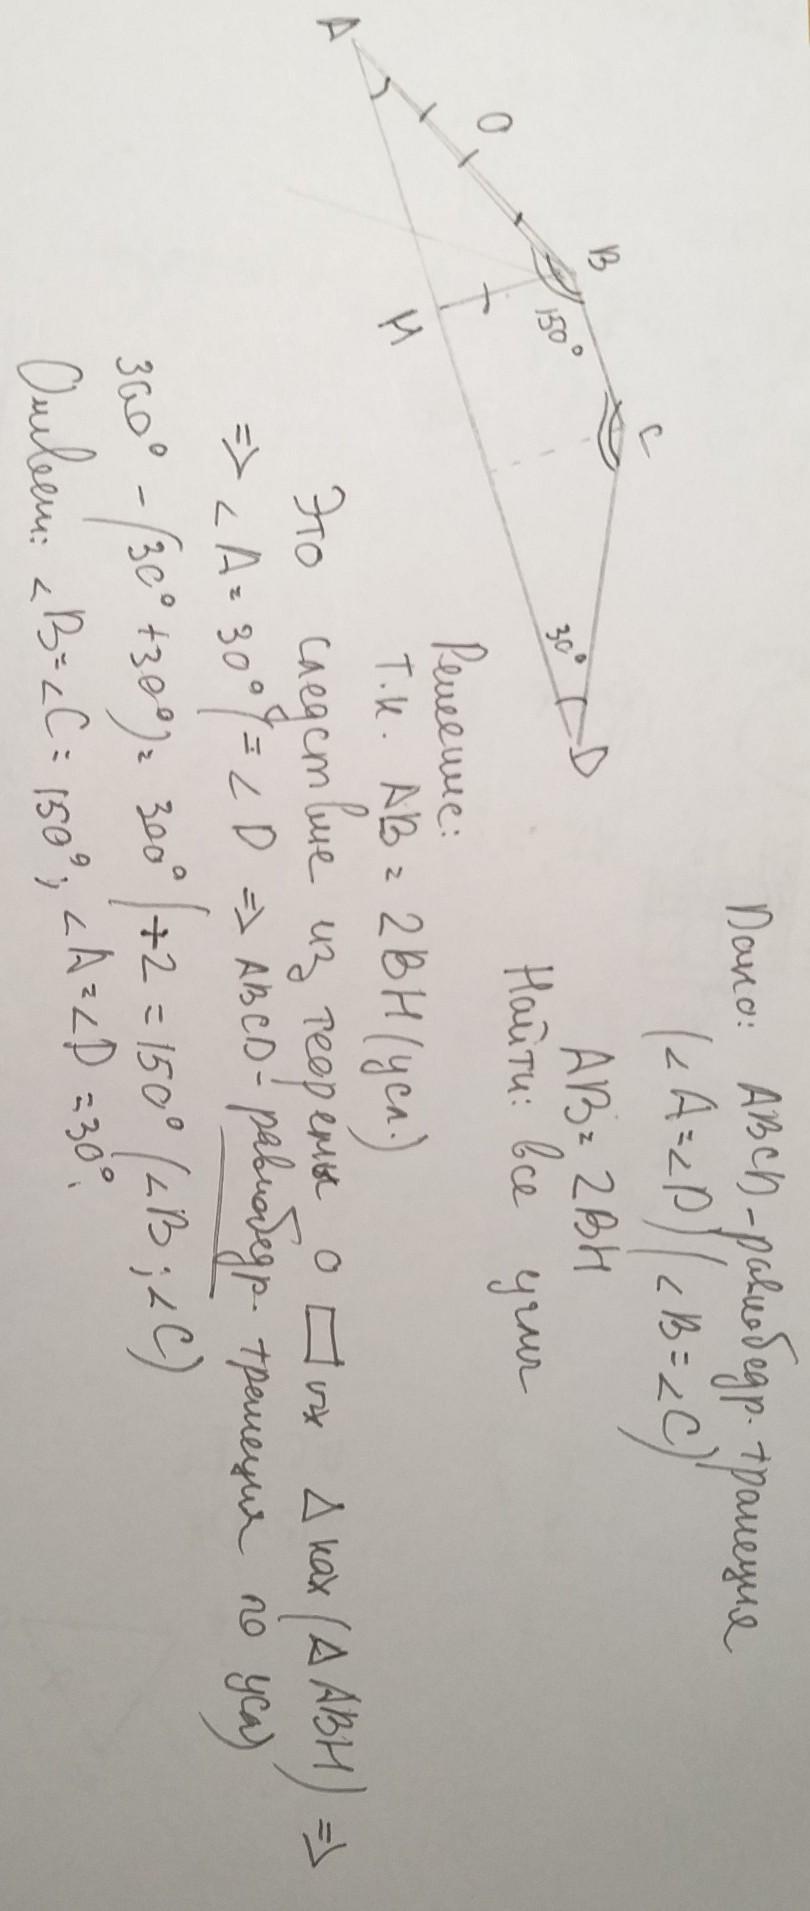 A
O
B
150°
C
H
30°
D
Дано: ABCD - равнобедр. трапеция
(∠A=∠D) (∠B=∠C)
AB = 2BH
Найти: все углы
Решение:
Т.к. AB = 2BH (усл.)
Это следствие из теоремы о □ых Δках (Δ ABH) =>
=> ∠A = 30° (= ∠D => ABCD - равнобедр. трапеция по усл)
360° - (30° + 30°) = 300° | ÷2 = 150° (∠B; ∠C)
Ответ: ∠B = ∠C = 150°; ∠A = ∠D = 30°.